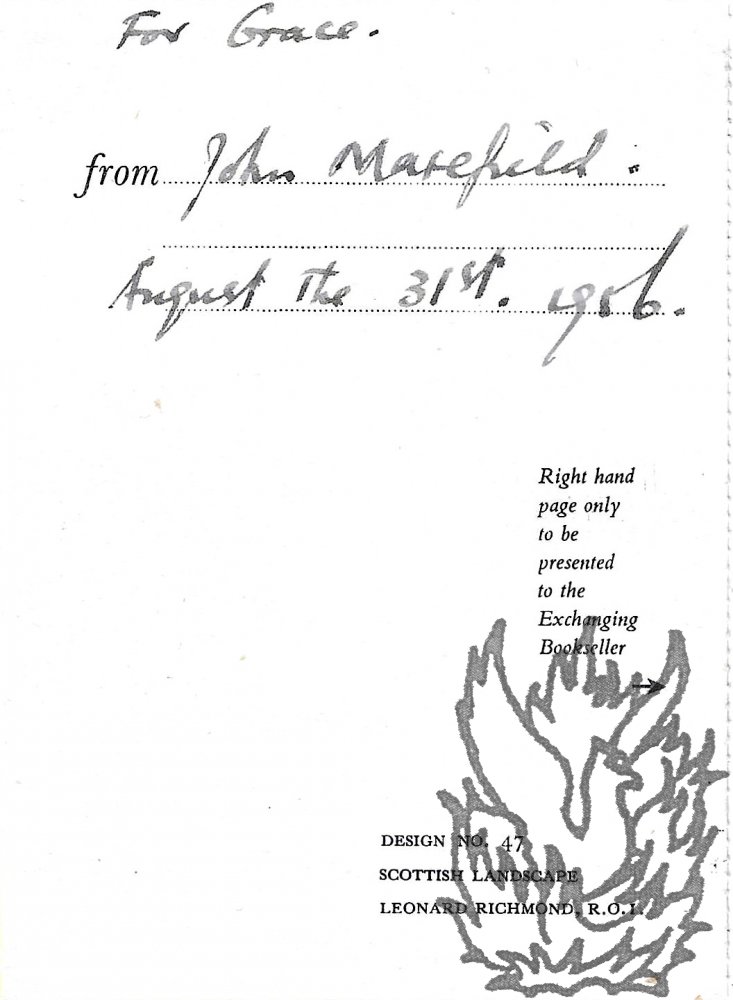 For Grace.
from John Masefield.
August the 31st. 1956.
Right hand
page only
to be
presented
to the
Exchanging
Bookseller
DESIGN NO. 47
SCOTTISH LANDSCAPE
LEONARD RICHMOND, R.O.I.